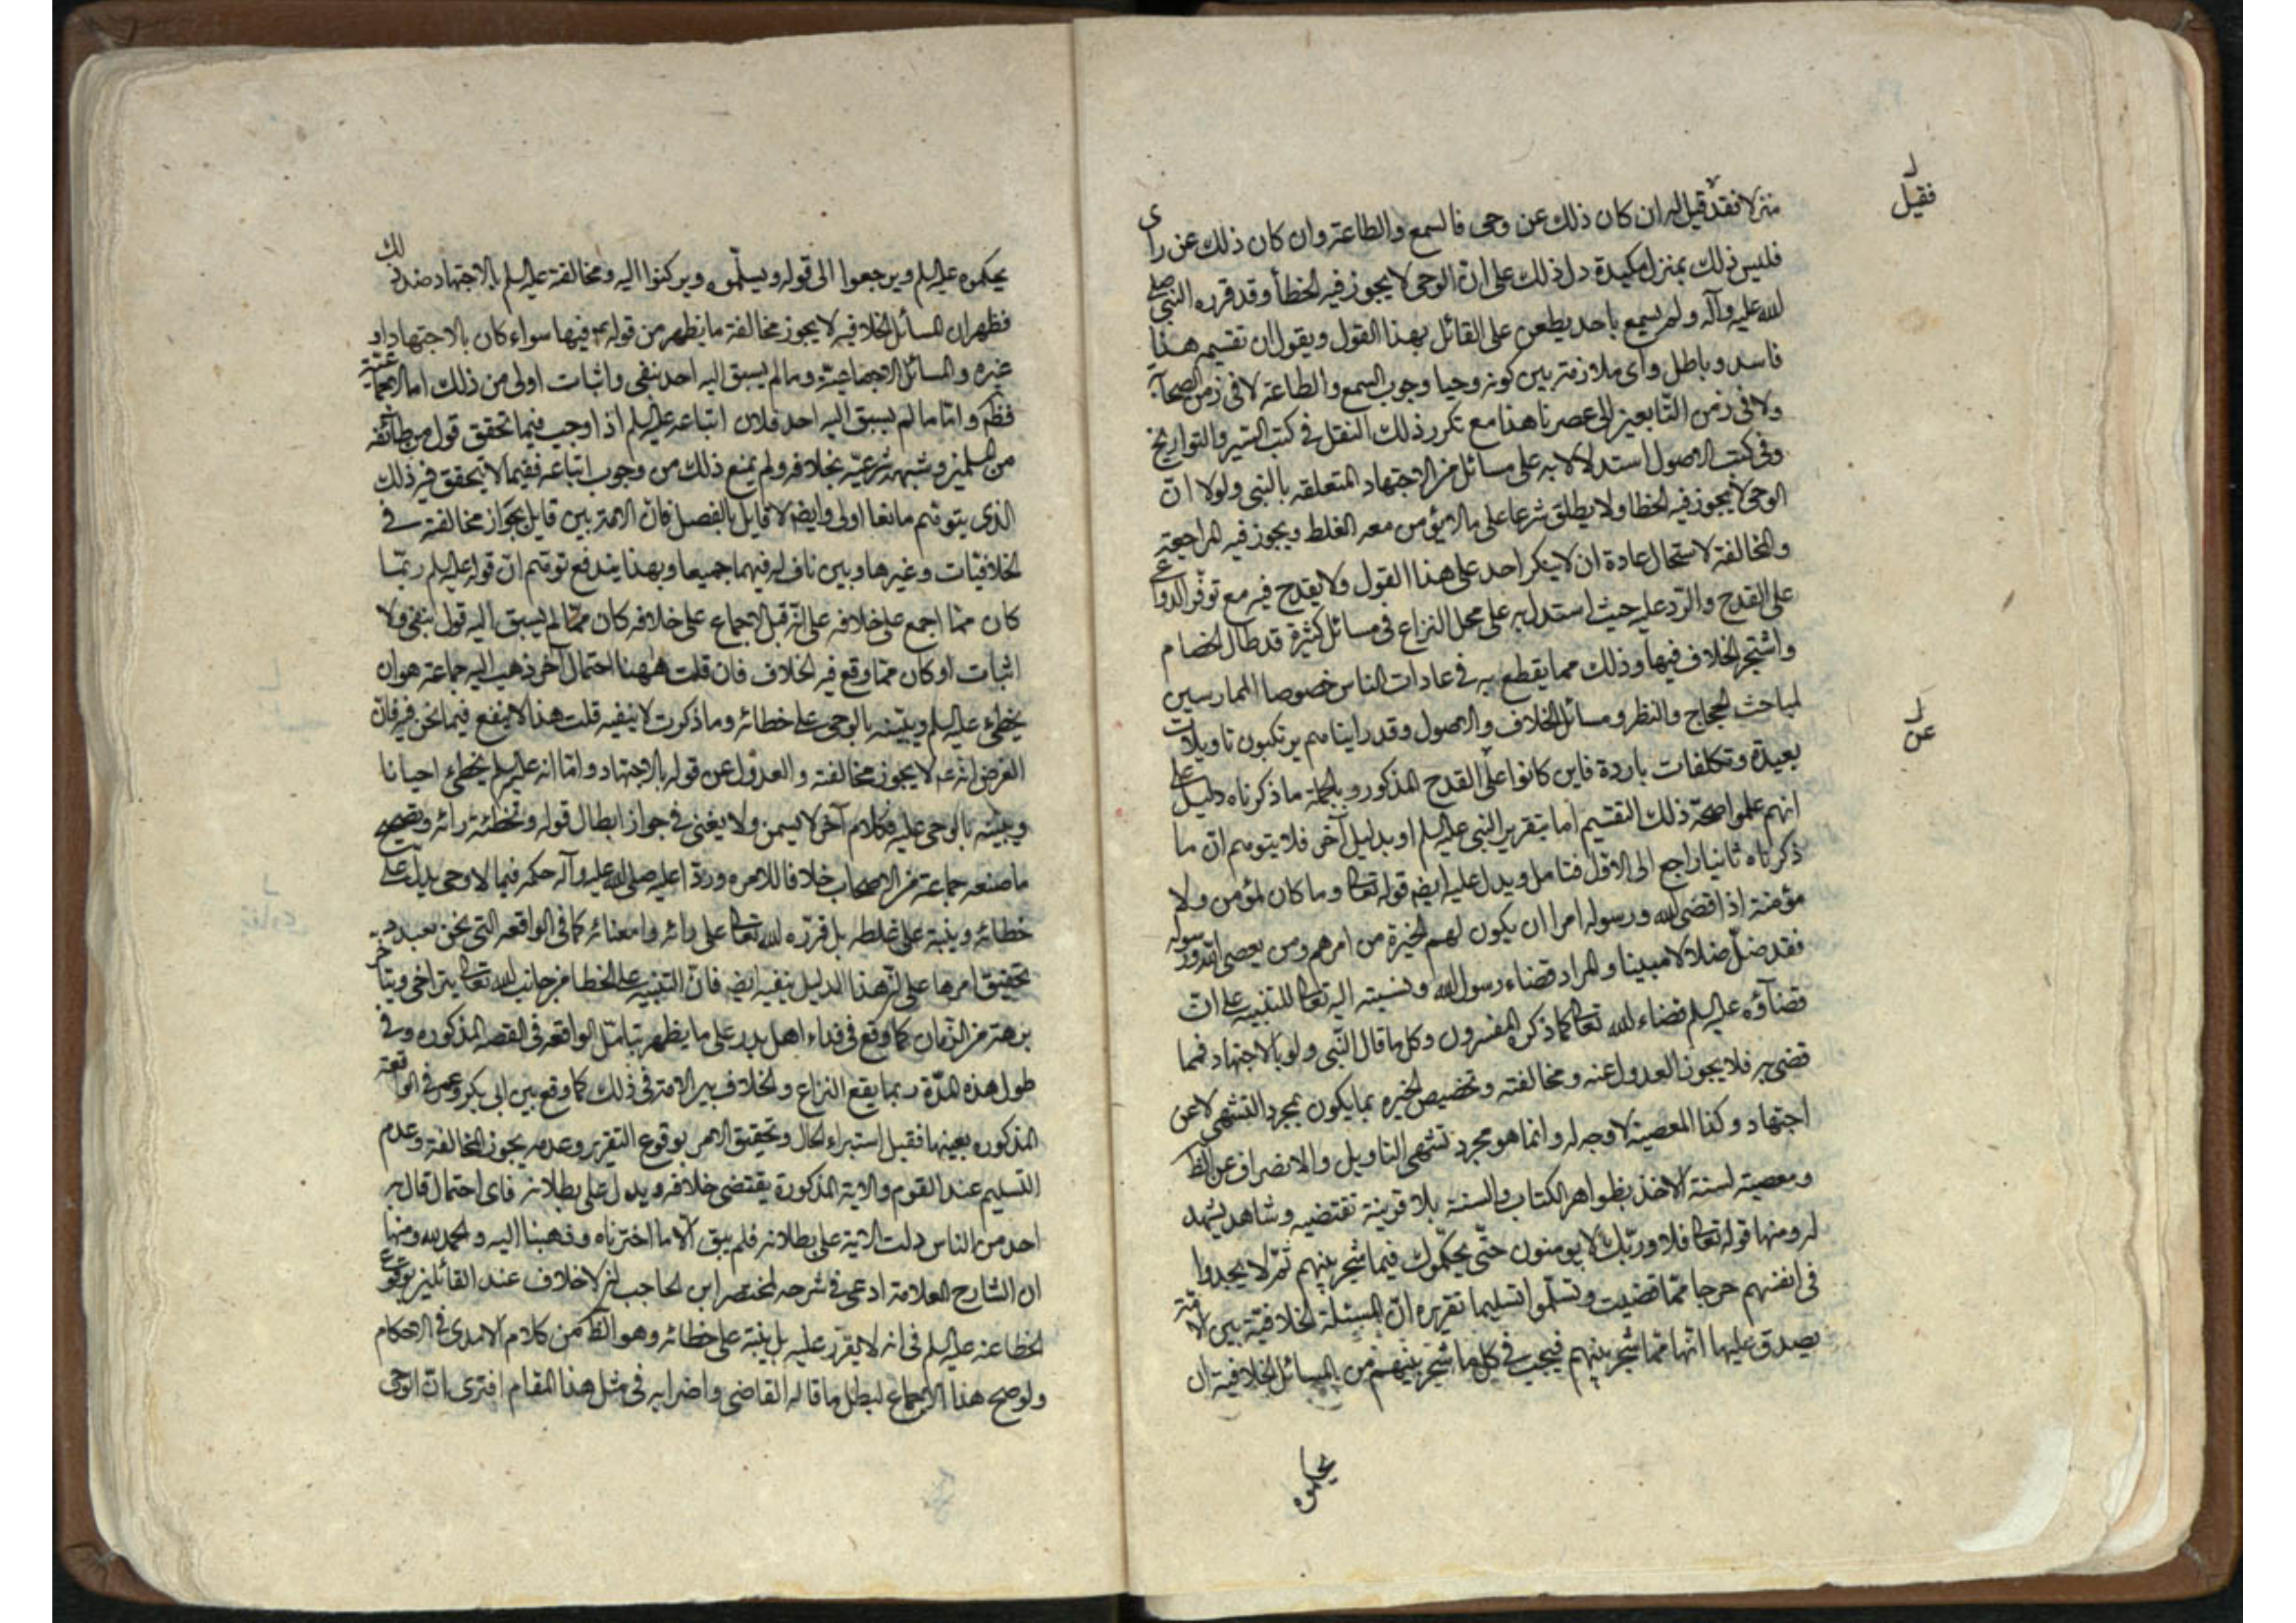 منزلا فقد قيل له ان كان ذلك عن وحى فالسمع والطاعة وان كان ذلك عن راى
فليس ذلك بمنزل مكيدة دل ذلك على ان الوحى لا يجوز فيه الخطأ وقد قرره النبى صلى
الله عليه وآله ولم يسمع باحد يطعن على القائل بهذا القول ويقول ان تقسيم هذا
فاسد وباطل واى ملازمة بين كونه وحيا ووجوب السمع والطاعة لا فى زمن الصحابة
ولا فى زمن التابعين الى عصرنا هذا مع تكرر ذلك النقل فى كتب السير والتواريخ
وفى كتب الاصول استدلالا به على مسائل من الاجتهاد المتعلقه بالنبى ولولا انّ
الوحى لا يجوز فيه الخطا ولا يطلق شرعا على ما لا يؤمن معه الغلط ويجوز فيه المراجعة
والمخالفة لاستحال عادة ان لا ينكر احد على هذا القول ولا يقدح فيه مع توفّر الدواعى
على القدح والردّ عليه حيث استدل به على محل النزاع فى مسائل كثيرة قد طال الخصام
واشتجر الخلاف فيها وذلك مما يقطع به فى عادات الناس خصوصا الممارسين
لمباحث الحجاج والنظر ومسائل الخلاف والاصول وقد رايناهم يرتكبون تاويلات
بعيدة وتكلفات باردة فاين كانوا على القدح المذكور وبالجملة ما ذكرناه دليل على
انهم علموا صحّة ذلك التقسيم اما بتقرير النبى عليه السلم او بدليل آخر فلا يتوهم انّ ما
ذكرناه ثانيا راجع الى الاوّل فتامل ويدل عليه ايضه قوله تعالى وما كان لمؤمن ولا
مؤمنة اذا قضى الله ورسوله امرا ان يكون لهم الخيرة من امرهم ومن يعصى الله ورسوله
فقد ضلّ ضلالا مبينا والمراد قضاء رسول الله ونسبته اليه تعالى للتنبيه على انّ
قضآؤه عليه السلم قضاء الله تعالى كما ذكره المفسرون وكل ما قال النّبى ولو بالاجتهاد فمما
قضى به فلا يجوز العدول عنه ومخالفته وتخصيص الخيره بما يكون بمجرد التشهى لا عن
اجتهاد وكذا المعصية لا وجه له وانما هو مجرد تشهى التاويل والانصراف عن الظ
ومعصية لسنة الاخذ بظواهر الكتاب والسنة بلا قرينة تقتضيه وشاهد يشهد
له ومنها قوله تعالى فلا وربّك لا يومنون حتّى يحكّموك فيما شجر بينهم ثمّ لا يجدوا
فى انفسهم حرجا ممّا قضيت وتسلّموا تسليما تقريره انّ المسئلة الخلافيّة بين الامّة
يصدق عليها انّها ممّا شجر بينهم فيجب فى كل ما شجر بينهم من المسائل الخلافية ان
يحكموه
فقيل
عن
يحكموه عليه السلم ويرجعوا الى قوله ويسلّموه ويركنوا اليه ومخالفة عليه السلم بالاجتهاد ضد ذلك
فظهر ان المسائل الخلافيه لا يجوز مخالفة ما يظهر من قوله فيها سواء كان بالاجتهاد او
غيره والمسائل الاجماعية وما لم يسبق اليه احد بنفى واثبات اولى من ذلك اما الاجماعيّة
فظهر وامّا ما لم يسبق اليه احد فلان اتباعه عليه السلم اذا وجب فيما تحقق قول من طائفة
من المسلمين وشبهة شرعيّة بخلافه ولم يمنع ذلك من وجوب اتباعه ففيما لا يتحقق فيه ذلك
الذى يتوهّم مانعا اولى وايضه لا قايل بالفصل فان الامّة بين قايل بجواز مخالفته فى
الخلافيّات وغيرها وبين ناف له فيهما جميعا وبهذا يندفع توهّم انّ قوله عليه السلم ربّما
كان ممّا اجمع على خلافه على انّه قبل الاجماع على خلافه كان ممّا لم يسبق اليه قول بنفى ولا
اثبات او كان ممّا وقع فيه الخلاف فان قلت ههنا احتمال آخر ذهب اليه جماعة هو ان
يخطى عليه السلم وينبّه بالوحى على خطائه وما ذكرت لا ينفيه قلت هذا لا ينفع فيما نحن فيه فانّ
الغرض انّه لا يجوز مخالفته والعدول عن قوله بالاجتهاد وامّا انه عليه السلم يخطئ احيانا
وينبّه بالوحى عليه فكلام آخر لا يسمن ولا يغنى فى جواز ابطال قوله وتخطئة رائه وتصحيح
ما صنعه جماعة من الاصحاب خلافا لامره وردّا عليه صلى الله عليه وآله حكمه فيما لا وحى يدلّ على
خطائه وينبّه على غلطه بل قرّره الله تعالى على رائه وامضائه كما فى الواقعه التى نحن بصدد
تحقيق امرها على انّ هذا الدليل ينفيه ايضه فانّ التنبيه على الخطا من جانب الله تعالى يتراخى ويتأخر
برهة من الزّمان كما وقع فى فداء اهل بدر على ما يظهر بتامّل الواقعه فى القصه المذكوره وفى
طول هذه المدّة ربما يقع النزاع والخلاف بين الامّة فى ذلك كما وقع بين ابى بكر وعمر فى الواقعة
المذكوره بعينها فقبل استبراء الحال وتحقيق الامر بوقوع التقرير وعدمه يجوز المخالفة وعدم
التسليم عند القوم والاية المذكورة يقتضى خلافه ويدل على بطلانه فاى احتمال قال به
احد من الناس دلت الاية على بطلانه فلم يبق الّا ما اخترناه وذهبنا اليه والحمد لله ومنها
ان الشارح العلامة ادعى فى شرحه لمختصر ابن الحاجب ان لا خلاف عند القائلين بوقوع
الخطا عنه عليه السلم فى انه لا يقرّر عليه بل ينبّه على خطائه وهو الظ من كلام الامدى فى الاحكام
ولو صح هذا الاجماع لبطل ما قاله القاضى واضرابه فى مثل هذا المقام افترى انّ الوحى